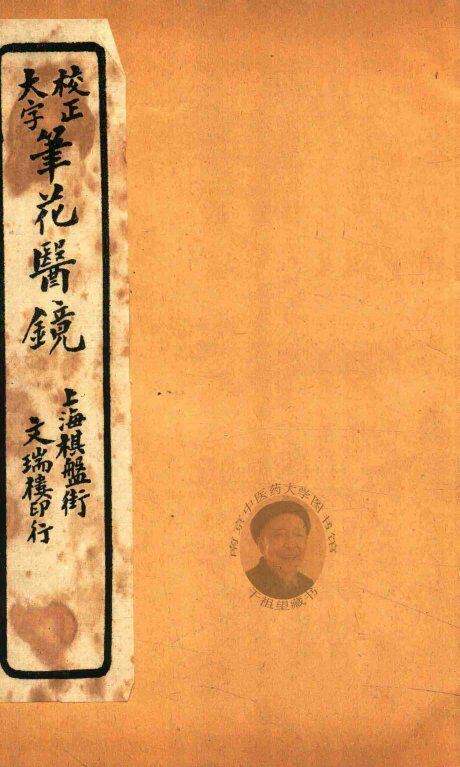 校正
大字
筆花醫鏡
上海棋盤街
文瑞樓印行
南京中医药大学图书馆
干祖望藏书